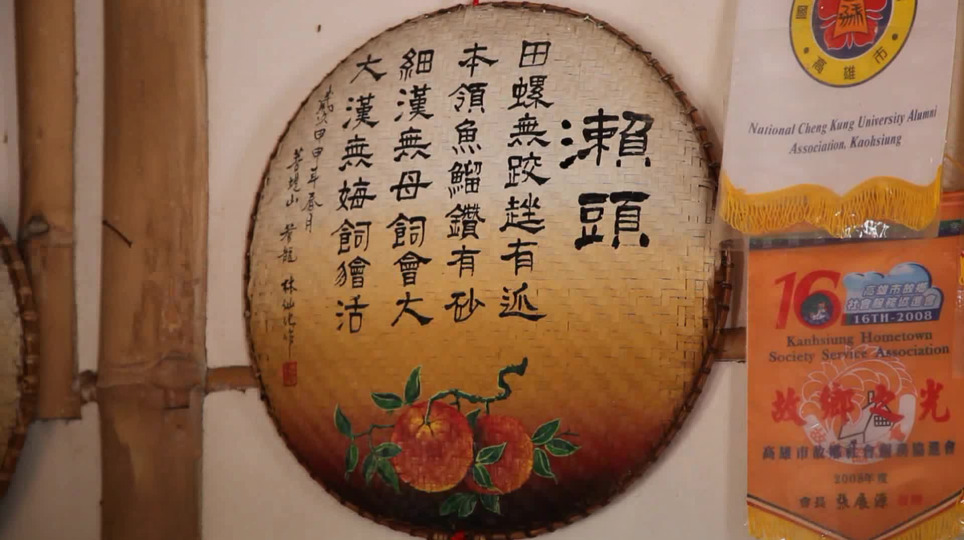 瀨頭
田螺無跤趖有迡
本領魚鰡鑽有砂
細漢無母飼會大
大漢無娒飼獪活
甲申年春月
國
高雄市
National Cheng Kung University Alumni
Association, Kaohsiung
16
高雄市故鄉
社會服務協進會
16TH-2008
Kauhsiung Hometown
Society Service Association
故鄉之光
高雄市故鄉社會服務協進會
2008年度
會長 張展源